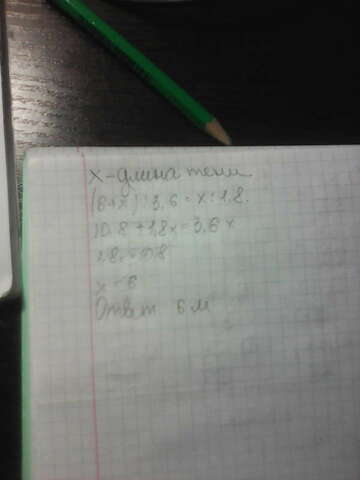 x - длина тени
(6+x) : 3,6 = x : 1,8.
10.8 + 1,8x = 3,6 x
1,8x = 10,8
x = 6
Ответ 6 м